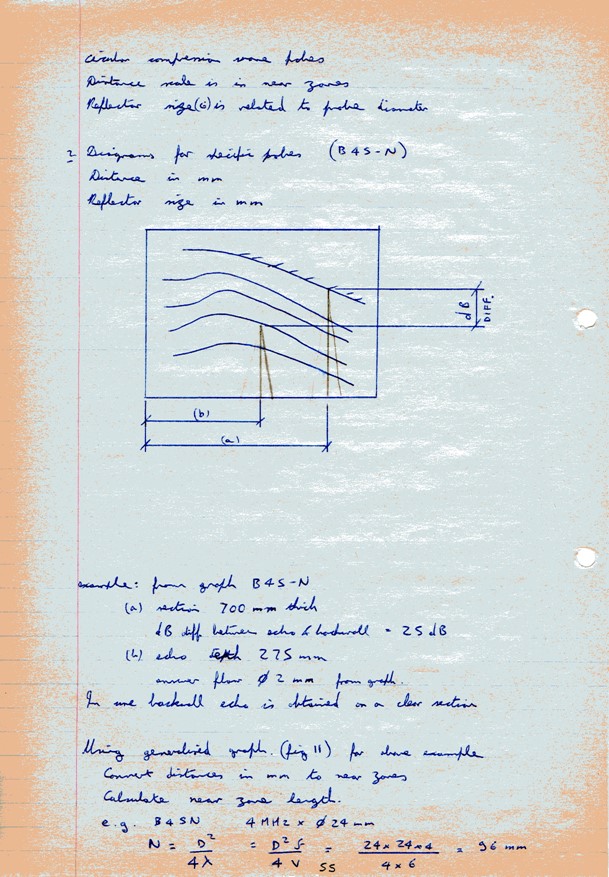 Circular compression wave probes
Distance scale is in near zones
Reflector size (G) is related to probe diameter
2 Diagrams for specific probes (B4S-N)
Distance in mm
Reflector size in mm
dB
DIFF.
(b)
(a)
example: from graph B4S-N
(a) section 700 mm thick
dB diff between echo & backwall = 25 dB
(b) echo depth 275 mm
answer flaw Ø 2 mm from graph.
In use backwall echo is obtained on a clear section
Using generalised graph. (fig 11) for above example
Convert distances in mm to near zones
Calculate near zone length.
e.g. B4SN 4 MHz x Ø 24 mm
N = D² / 4λ = D² f / 4 V = 24 x 24 x 4 / 4 x 6 = 96 mm
55